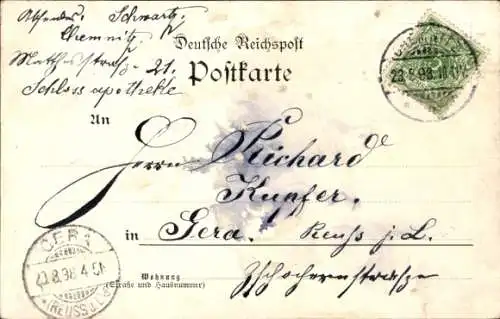 Absender: Schwartz,
Chemnitz
Matthesstraße 21.
Schloss apotheke
Deutsche Reichspost
Postkarte
23.8.98
An
Herrn Richard
Kupfer.
in Gera. Reuss j. L.
Zschochernstrasse
Wohnung
(Straße und Hausnummer)
GERA
23.8.98
(REUSS J.L.)